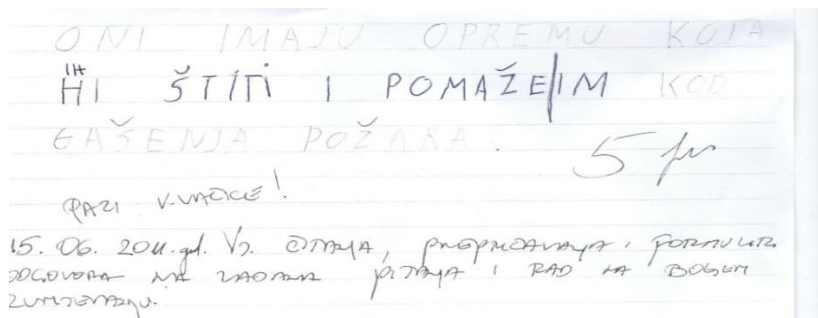 ONI IMAJU OPREMU KOJA
IH
HI ŠTITI I POMAŽE|IM KOD
GAŠENJA POŽARA.
5
PAZI KVAČICE!
15. 06. 2011. god. Vj. ČITANJA, PREPRIČAVANJA, FORMULIR.
ODGOVORA NA ZADANA PITANJA I RAD NA BOLJEM
RAZUMIJEVANJU.